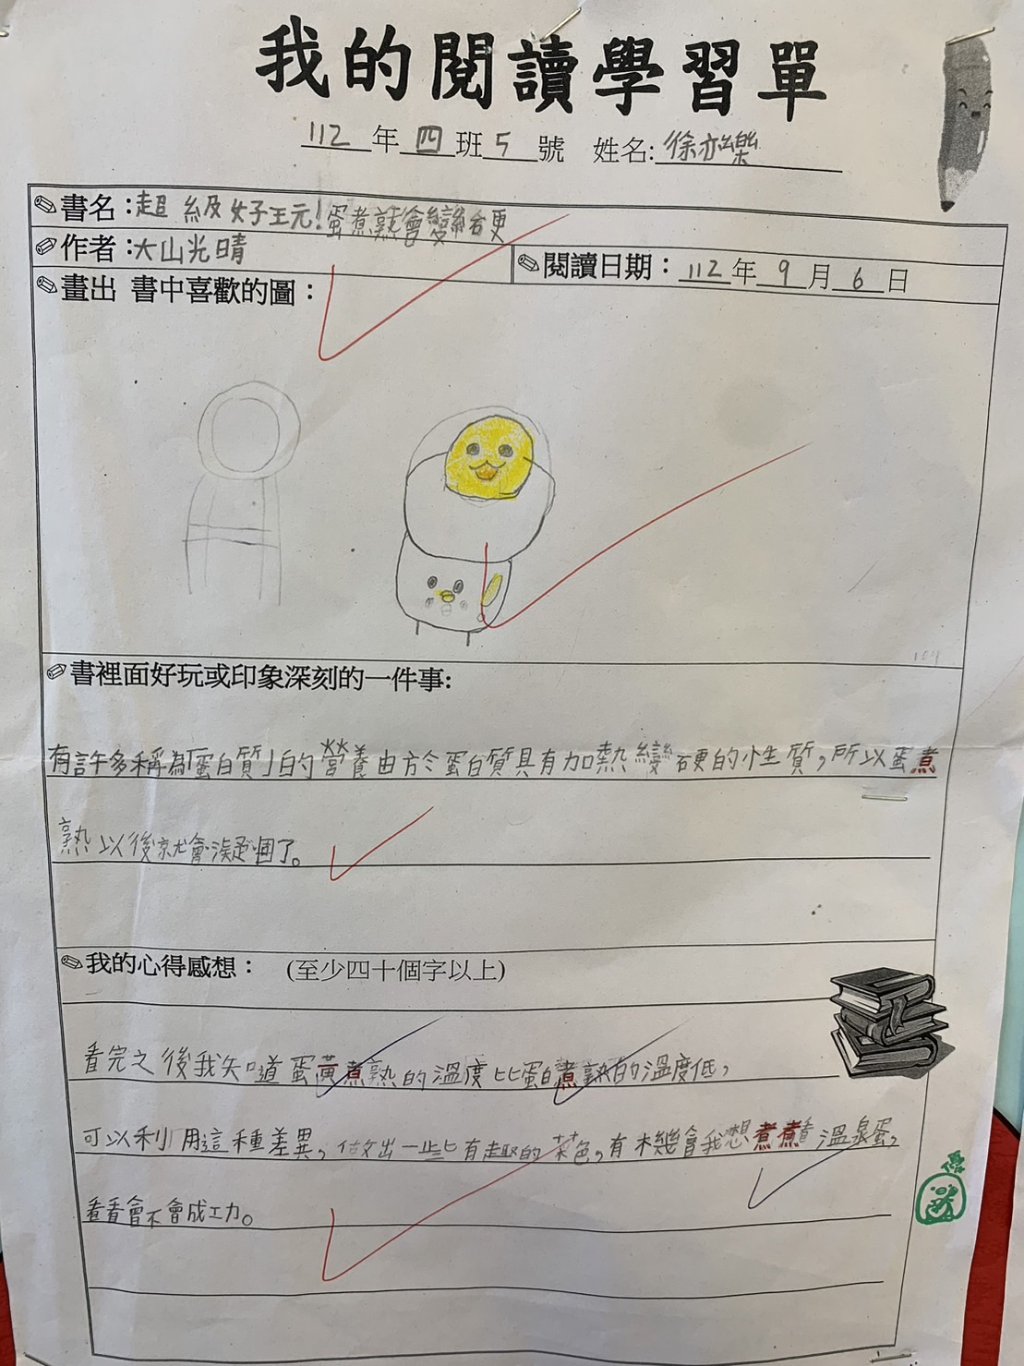 我的閱讀學習單
112年四班5號 姓名:徐亦樂
書名:超級好好玩!蛋煮熟會變硬
作者:大山光晴
閱讀日期:112年9月6日
畫出 書中喜歡的圖:
書裡面好玩或印象深刻的一件事:
有許多稱為「蛋白質」的營養由於蛋白質具有加熱變硬的性質,所以蛋煮
熟以後就會凝固了。
我的心得感想: (至少四十個字以上)
看完之後我知道蛋黃煮熟的溫度比蛋白煮熟的溫度低,
可以利用這種差異,做出一些有趣的菜色,有機會我想煮煮看溫泉蛋,
看看會不會成功。
優